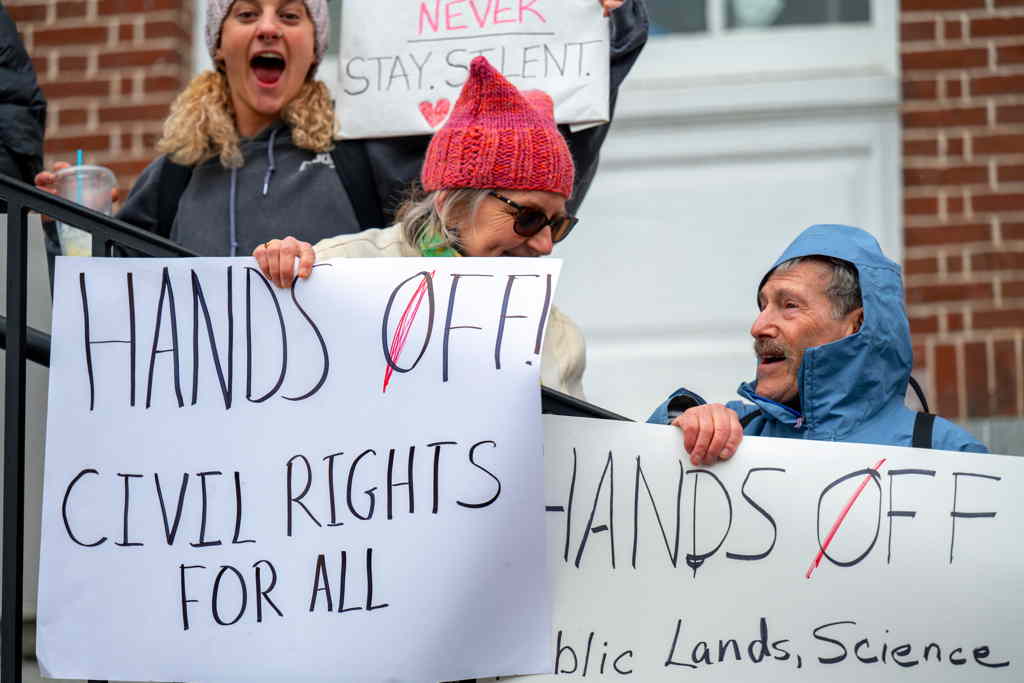 NEVER
STAY. SILENT.
HANDS OFF!
CIVIL RIGHTS
FOR ALL
HANDS OFF
blic Lands, Science